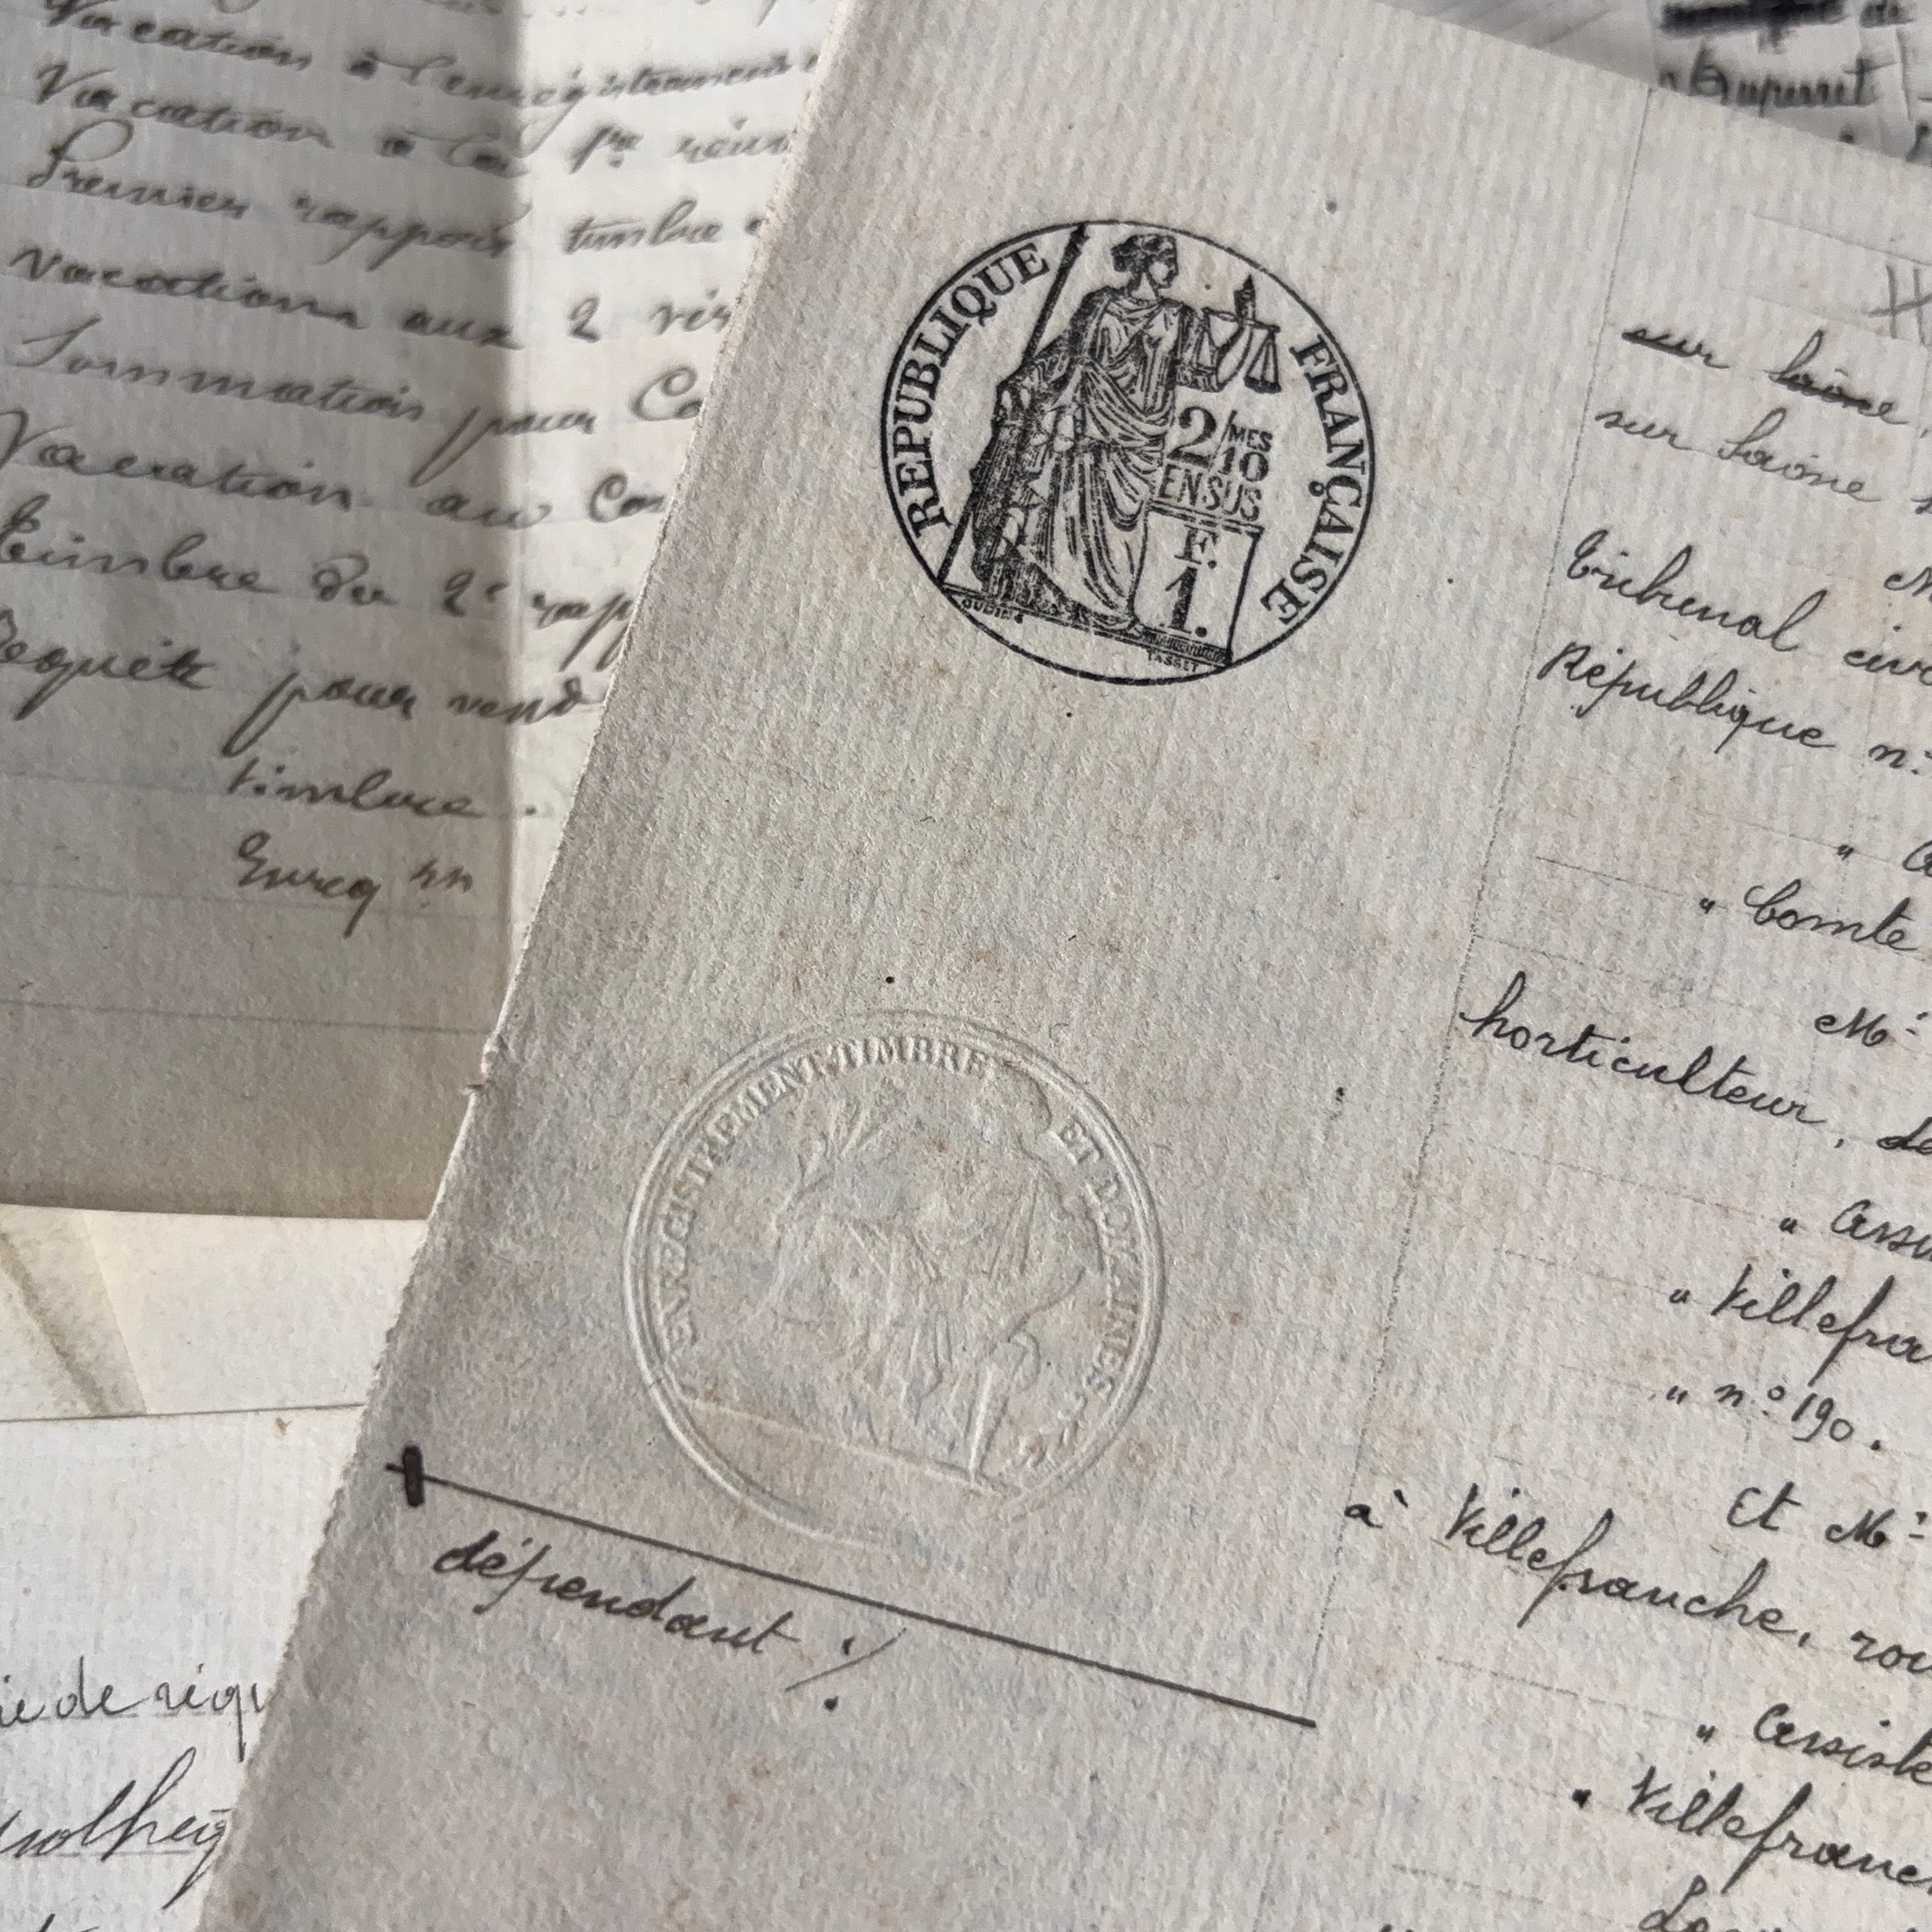 Vacation à l'enregistrement
Vacation à la 1re réun
Premier rapport timbre
Vacations aux 2 rés
Sommation pour Co
Vacation au Con
Timbre du 2e rapp
Requête pour vend
timbre.
Enreg nn
ie de réqu
REPUBLIQUE FRANÇAISE
2/MES
10
EN SUS
F.
1.
OUDINÉ
TASSET
ENREGISTREMENT, TIMBRE ET DOMAINES.
dépendant ./.
Duperret
sur Saône,
sur Saône
Tribunal civ
République n:
" Comte
Mr
horticulteur, de
" Assi
" Villefra
" n° 190.
Et Mr
à Villefranche, rou
" Assiste
" Villefranc